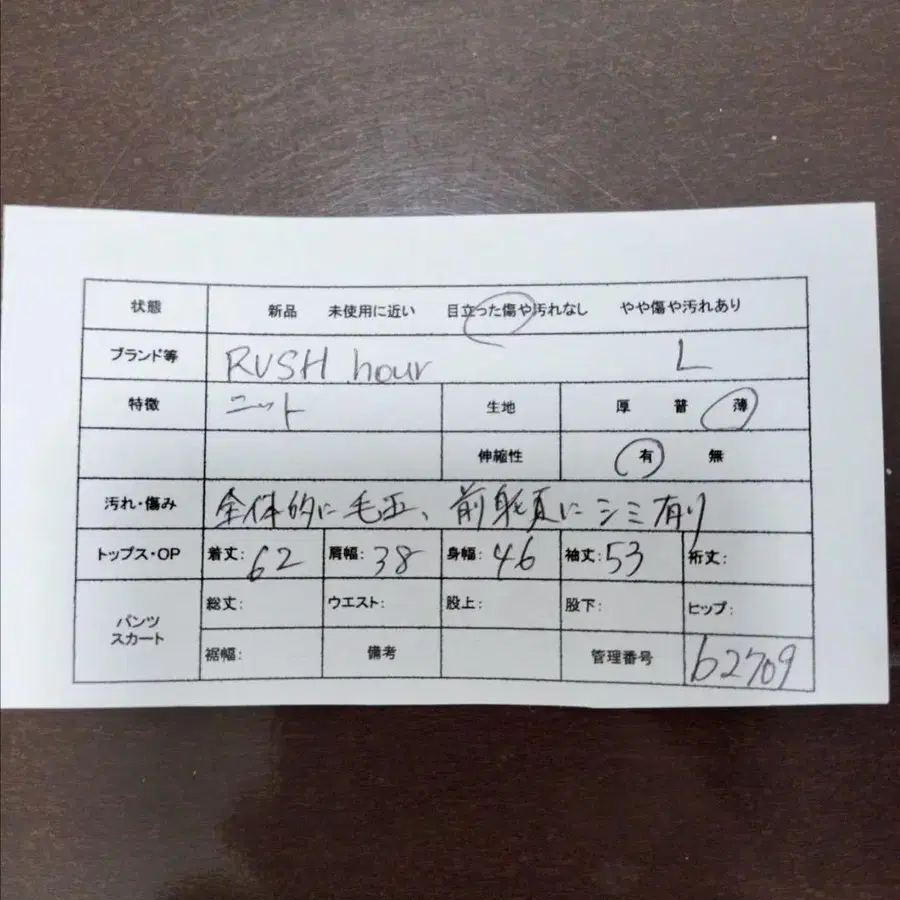 状態 新品 未使用に近い 目立った傷や汚れなし やや傷や汚れあり
ブランド等 RUSH hour L
特徴 ニット 生地 厚 普 薄
伸縮性 有 無
汚れ・傷み 全体的に毛玉、前身頃にシミ有り
トップス・OP 着丈: 62 肩幅: 38 身幅: 46 袖丈: 53 裄丈:
パンツ スカート 総丈: ウエスト: 股上: 股下: ヒップ:
裾幅: 備考 管理番号 b2709